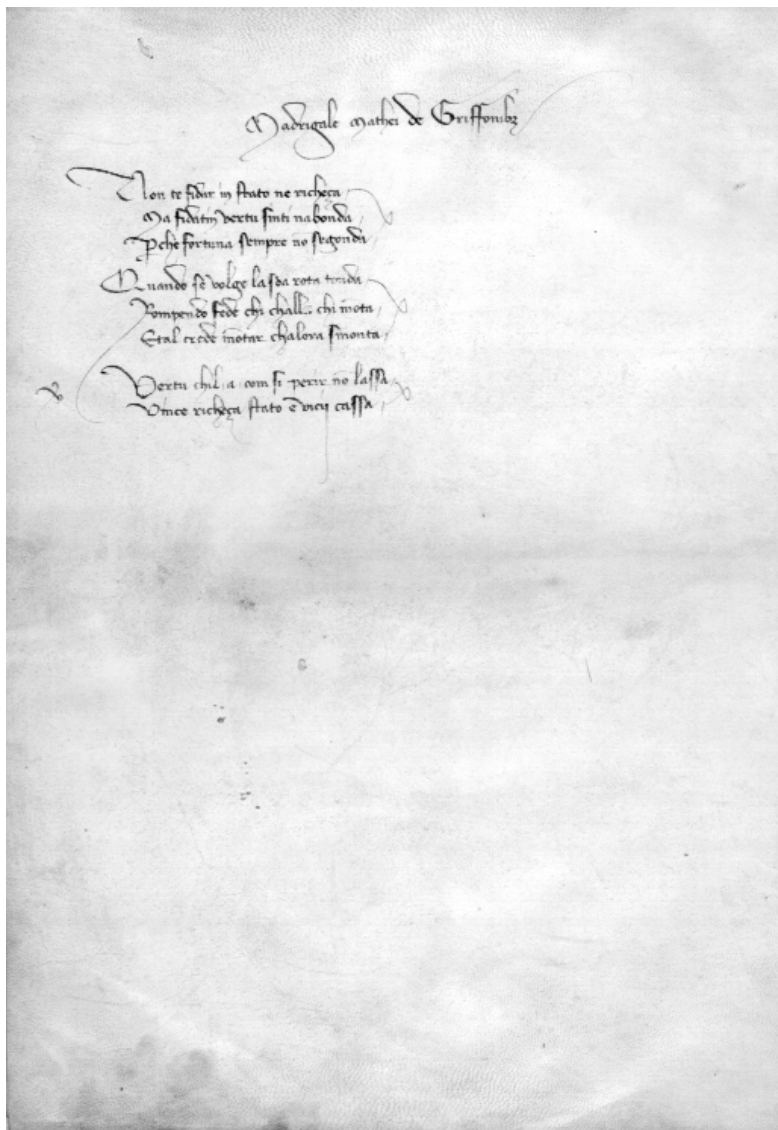 Madrigale Mathei de Griffonibꝫ
Non te fidar in stato ne richeça
Ma fidatin vertu sinti nabonda
Pche fortuna sempre nō segonda
Quando se volge la sua rota tonda
Rompendo fede chi chall chi mōta
Etal crede mōtar chalora smonta
Vertu chil a com si perir nō lassa
Vince richeça stato e vicij cassa